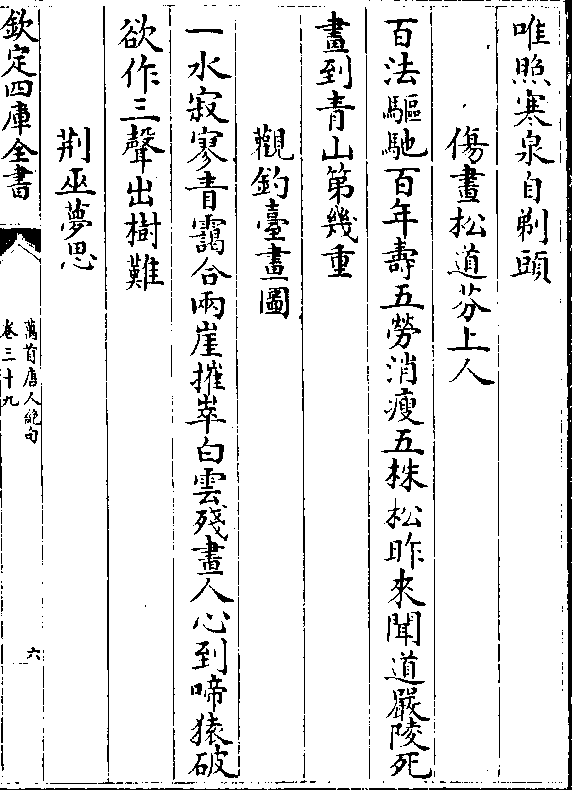 唯照寒泉自剃頭
傷畫松道芬上人
百法驅馳百年壽五勞消瘦五株松昨來聞道嚴陵死
畫到青山第幾重
觀釣臺畫圖
一水寂寥青靄合兩崖摧崒白雲殘畫人心到啼猿破
欲作三聲出樹難
荆巫夢思
欽定四庫全書
萬首唐人絶句
卷三十九
六